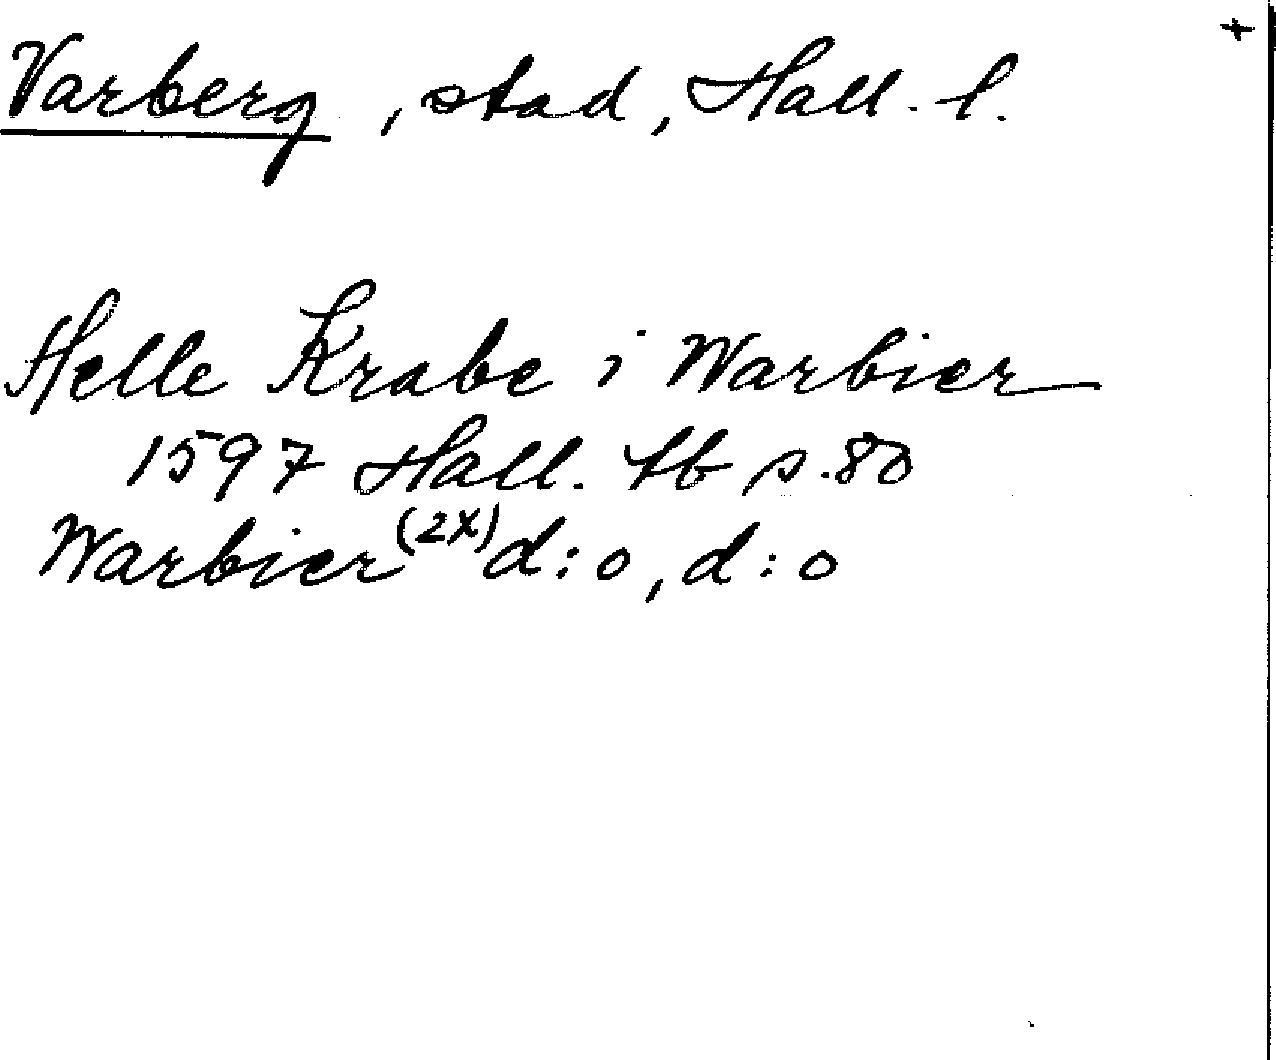 +
Varberg, stad, Hall. l.
Helle Krabe i Warbier
1597 Hall. tb s. 80
Warbier (2x) d:o, d:o